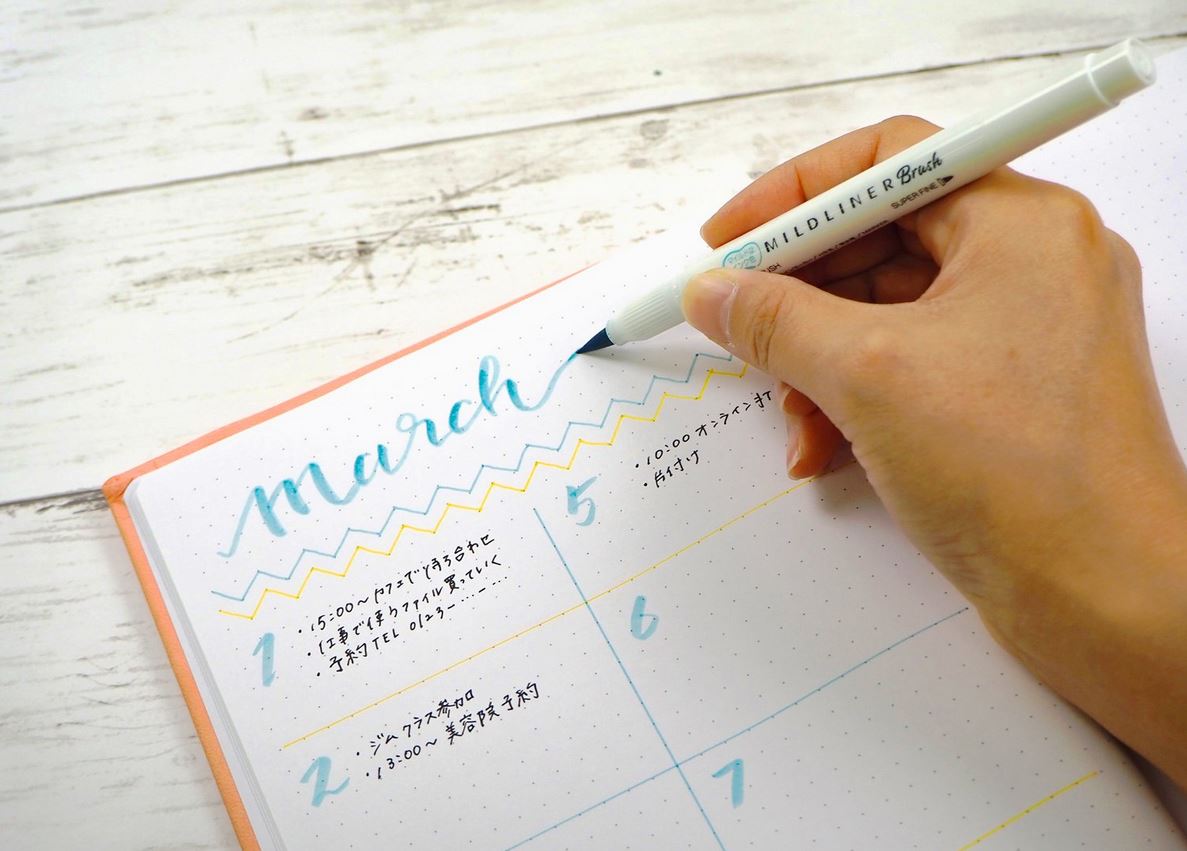 march
1
・15:00～カフェで待ち合わせ
・仕事で使うファイル買っていく
・予約TEL 0123-…-…
2
・ジムクラス参加
・13:00～美容院予約
5
・10:00 オンライン打
・片付け
6
7
MILDLINER Brush
SUPER FINE